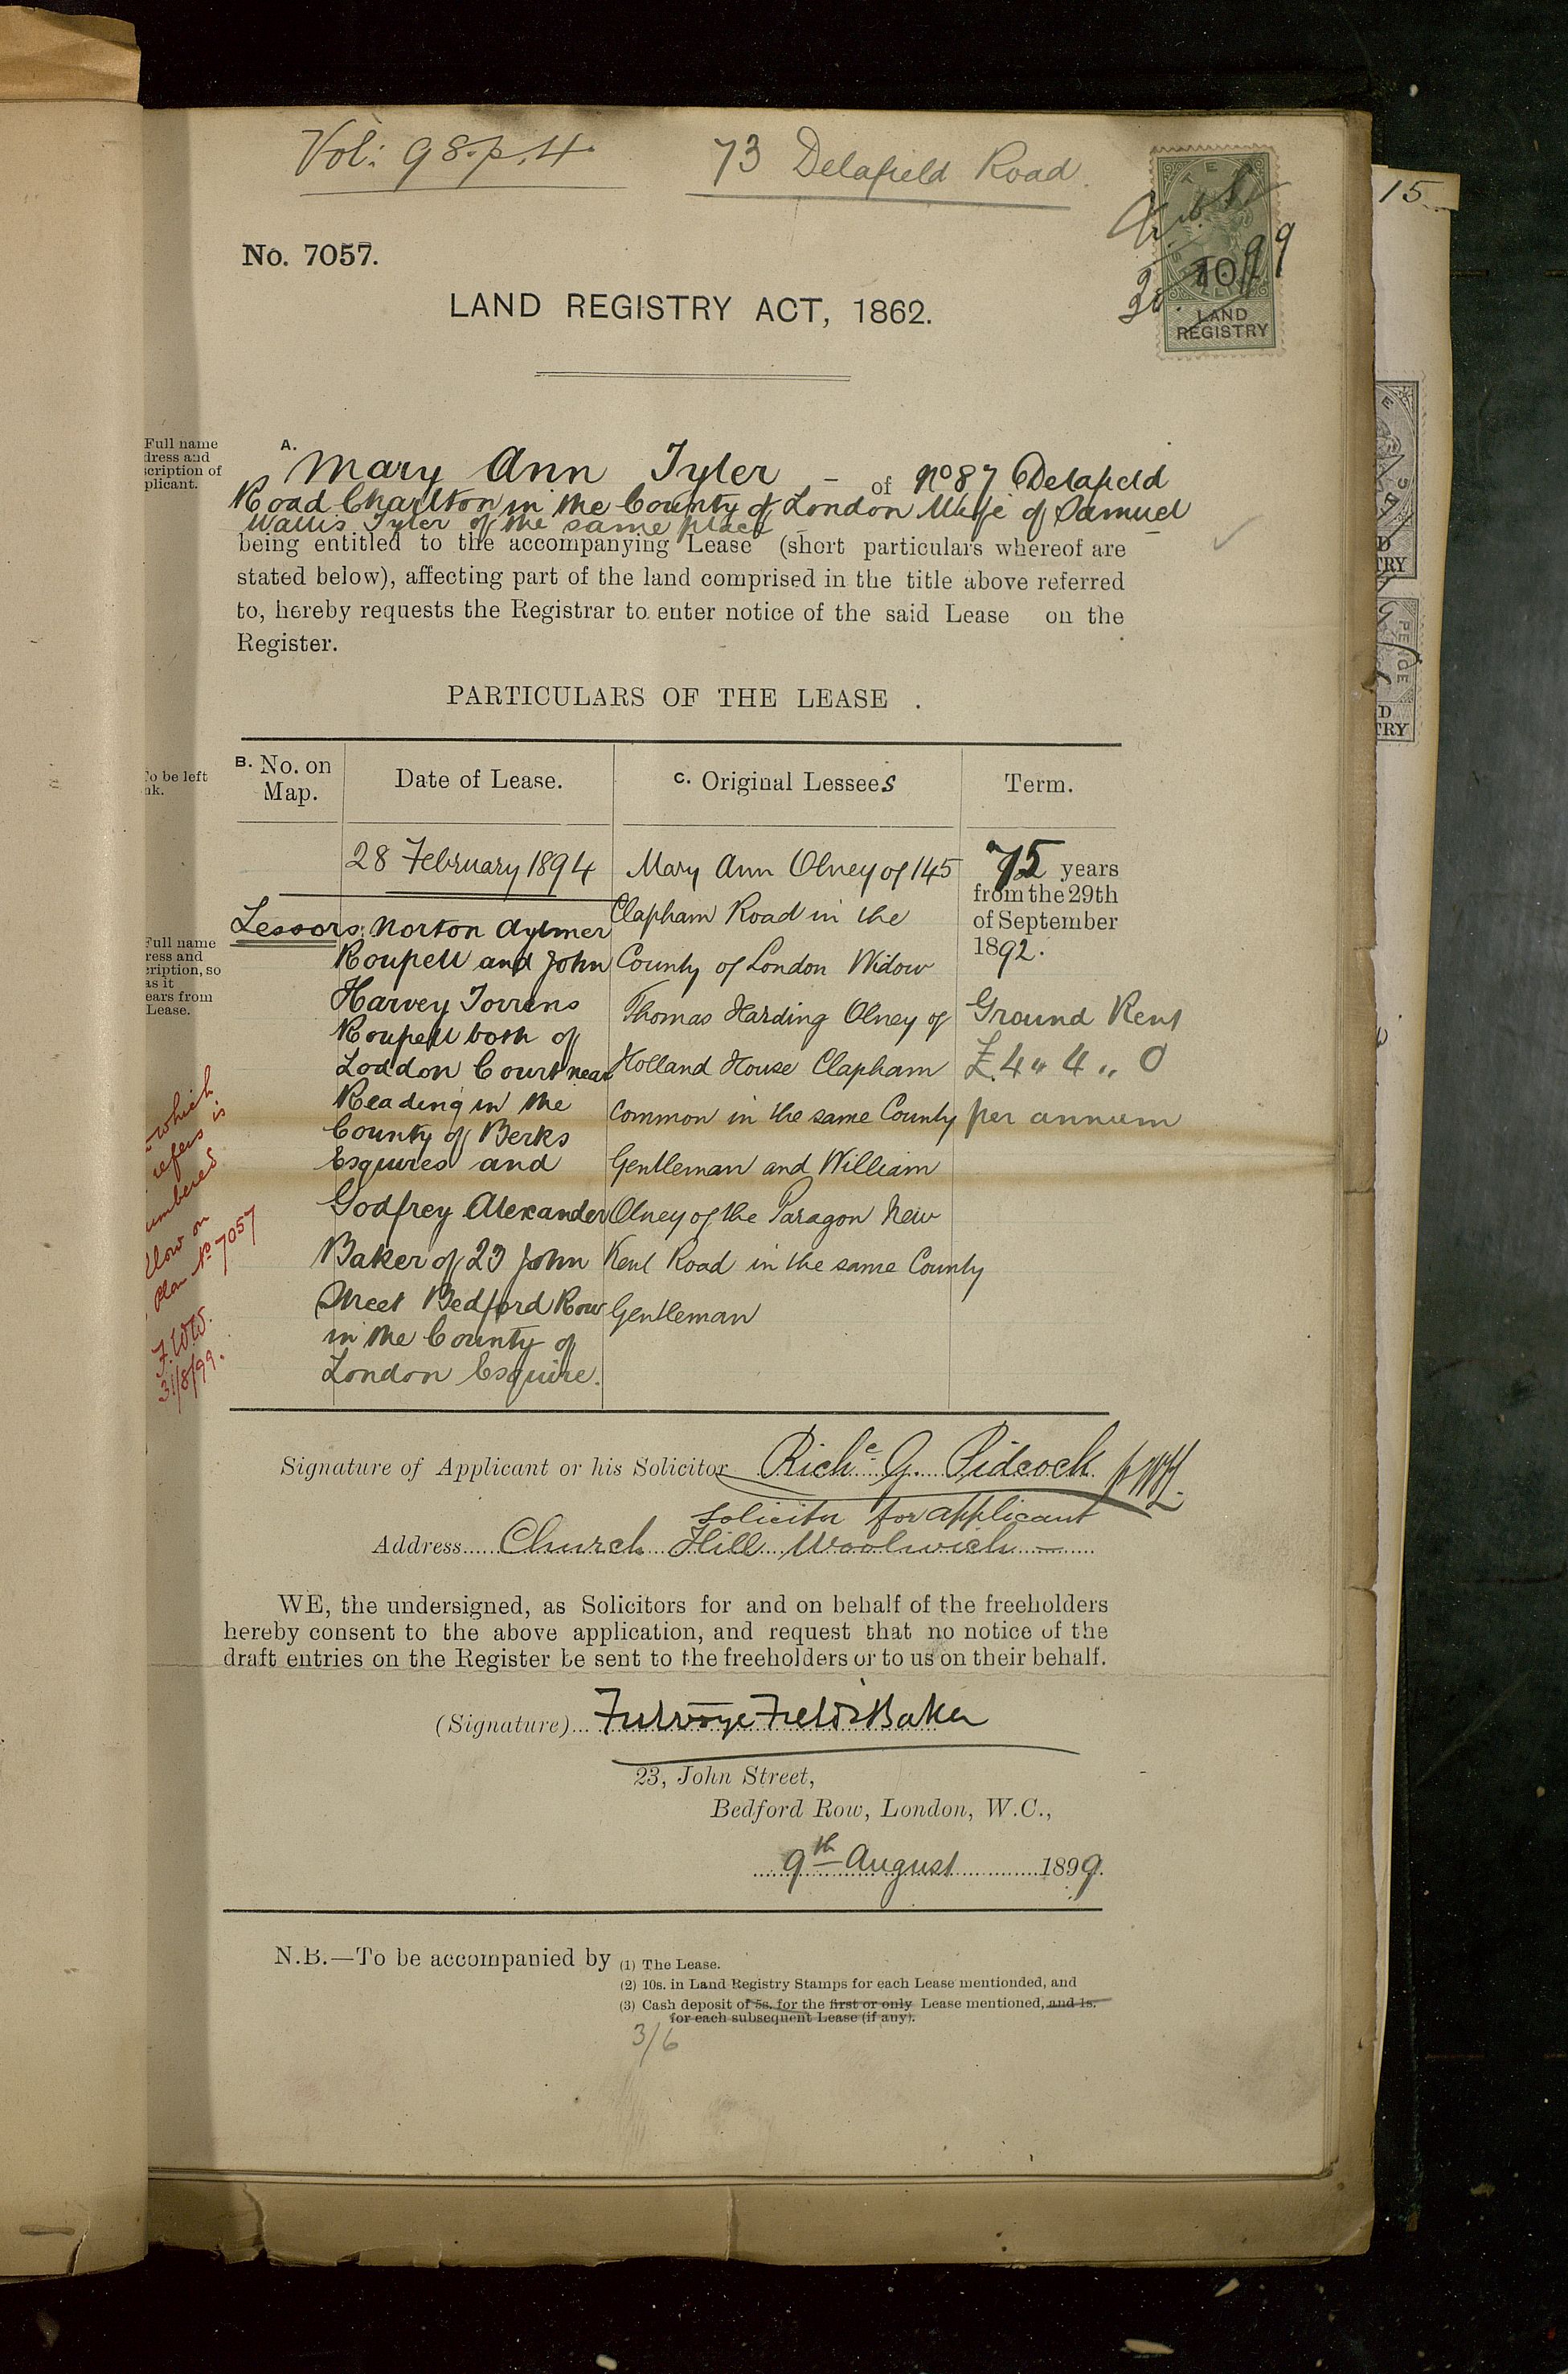 Vol: 98. p. 4.
73 Delafield Road.
15
No. 7057.
10
99
LAND
REGISTRY
LAND REGISTRY ACT, 1862.
Full name
dress and
scription of
plicant.
A. Mary Ann Tyler – of No 87 Delafield
Road Charlton in the County of London Wife of Samuel
Wallis Tyler of the same place –
being entitled to the accompanying Lease (short particulars whereof are
stated below), affecting part of the land comprised in the title above referred
to, hereby requests the Registrar to enter notice of the said Lease on the
Register.
PARTICULARS OF THE LEASE .
To be left
nk.
B. No. on
Map.
Date of Lease.
C. Original Lessees
Term.
28 February 1894
Lessors: Norton Aylmer
Roupell and John
Harvey Torrens
Roupell both of
Loddon Court near
Reading in the
County of Berks
Esquires and
Godfrey Alexander
Baker of 23 John
Street Bedford Row
in the County of
London Esquire.
Mary Ann Olney of 145
Clapham Road in the
County of London Widow
Thomas Harding Olney of
Holland House Clapham
Common in the same County
Gentleman and William
Olney of the Paragon New
Kent Road in the same County
Gentleman
75 years
from the 29th
of September
1892.
Ground Rent
£4 " 4 " 0
per annum
Full name
ress and
cription, so
as it
ears from
Lease.
which
refers is
umbered
llow on
Plan No 7057
F.W.W.
31/8/99.
Signature of Applicant or his Solicitor Richd G. Pidcock
Solicitor for applicant
Address Church Hill Woolwich
WE, the undersigned, as Solicitors for and on behalf of the freeholders
hereby consent to the above application, and request that no notice of the
draft entries on the Register be sent to the freeholders or to us on their behalf.
(Signature) Fulvoye Field & Baker
23, John Street,
Bedford Row, London, W.C.,
9th August 1899.
N.B.—To be accompanied by (1) The Lease.
(2) 10s. in Land Registry Stamps for each Lease mentionded, and
(3) Cash deposit of 5s. for the first or only Lease mentioned, and 1s.
for each subsequent Lease (if any).
3/6